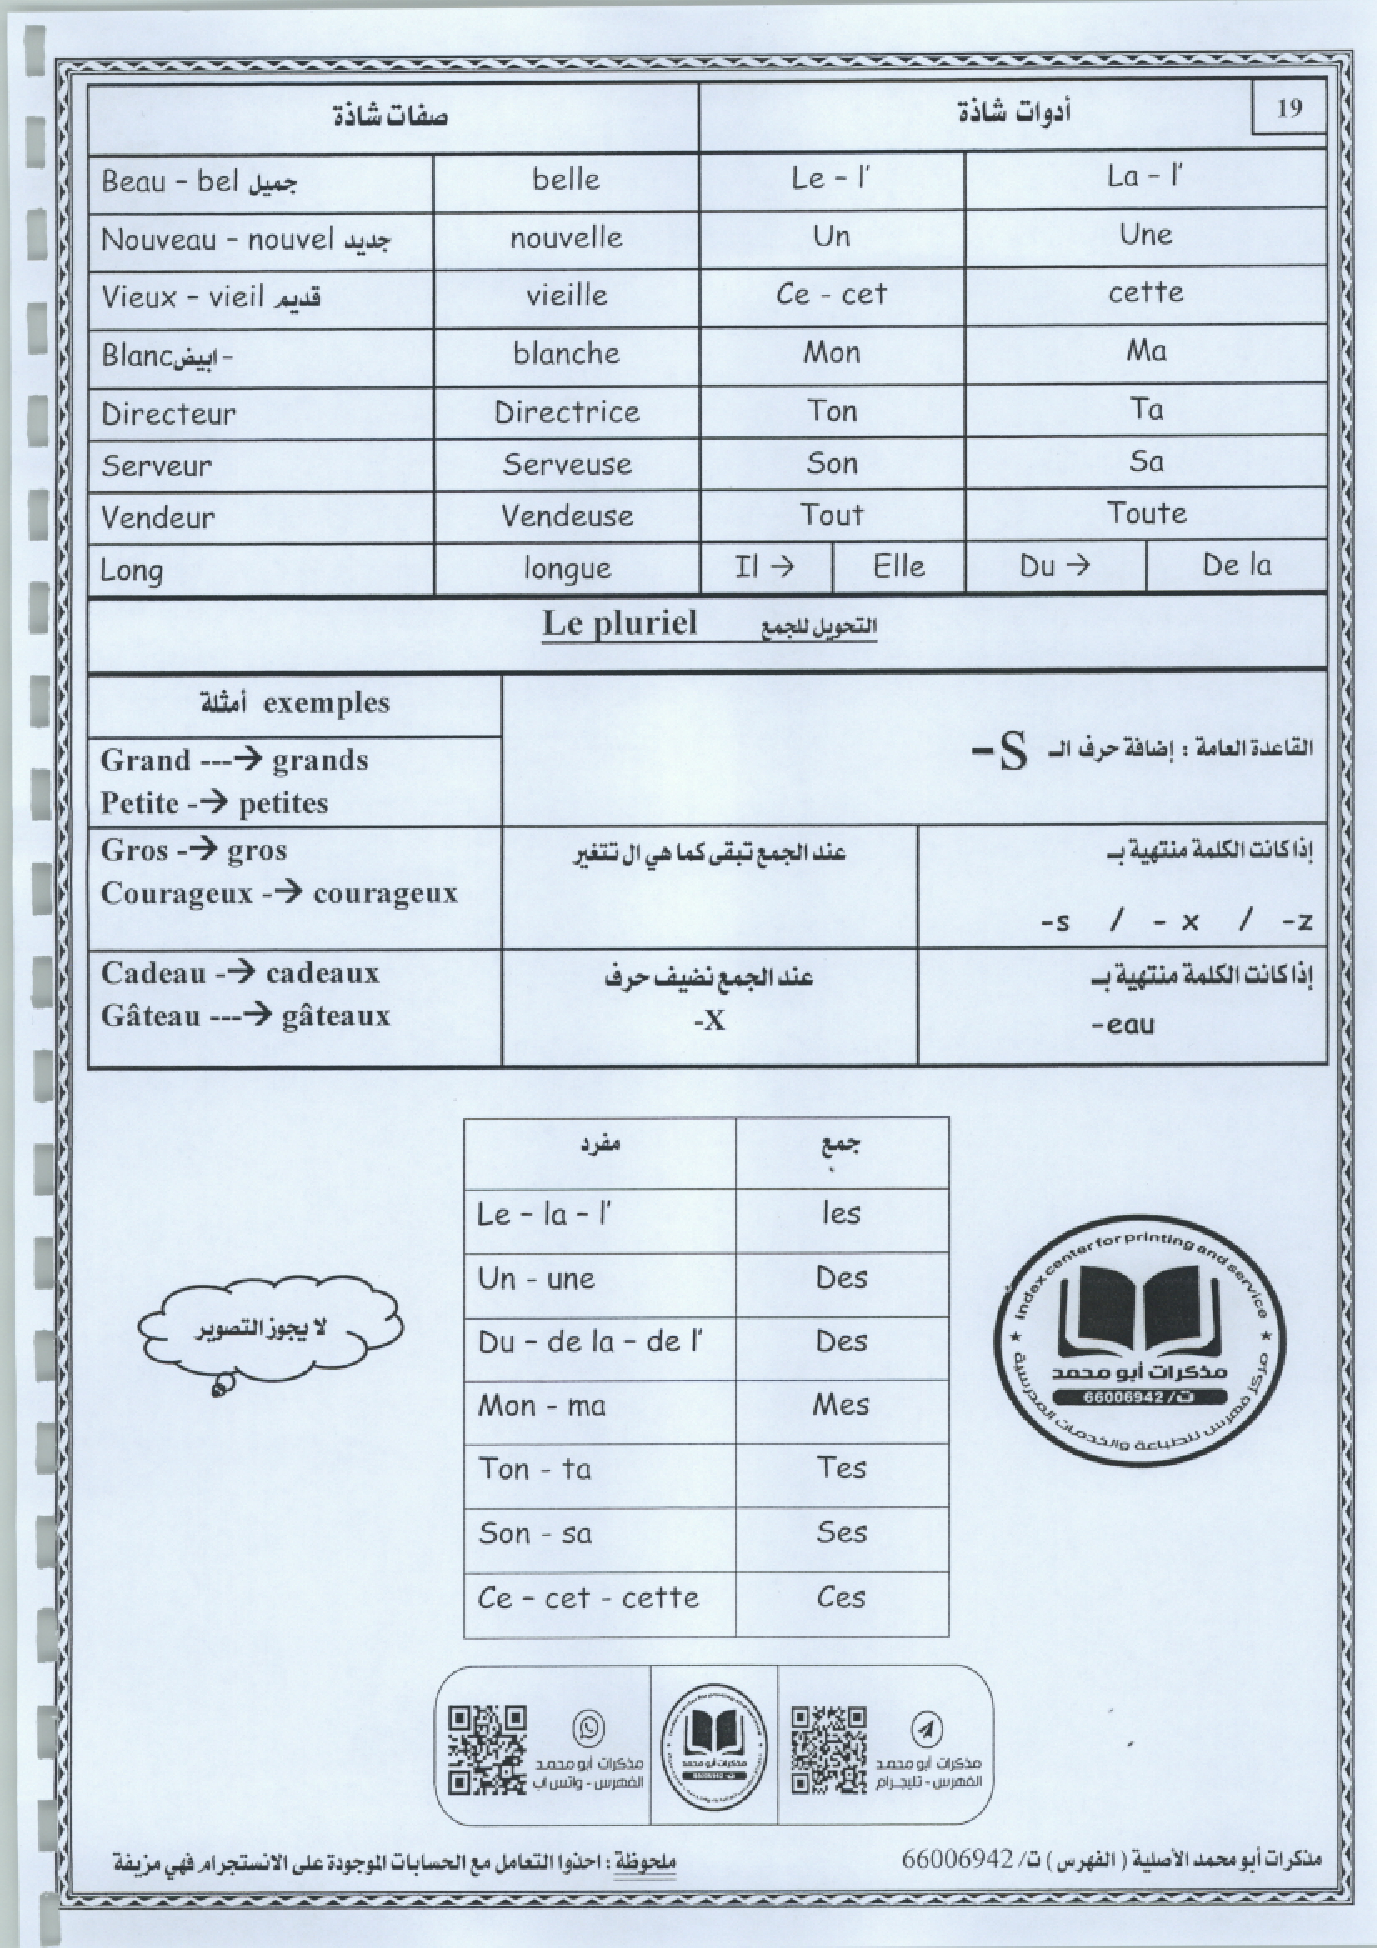 صفات شاذة أدوات شاذة 19
Beau – bel جميل belle Le – l' La – l'
Nouveau – nouvel جديد nouvelle Un Une
Vieux – vieil قديم vieille Ce - cet cette
Blancابيض- blanche Mon Ma
Directeur Directrice Ton Ta
Serveur Serveuse Son Sa
Vendeur Vendeuse Tout Toute
Long longue Il → Elle Du → De la
Le pluriel التحويل للجمع
أمثلة exemples
القاعدة العامة : إضافة حرف الـ –S
Grand ---→ grands
Petite -→ petites
Gros -→ gros
Courageux -→ courageux
عند الجمع تبقى كما هي ال تتغير
إذا كانت الكلمة منتهية بـ
-s / - x / -z
Cadeau -→ cadeaux
Gâteau ---→ gâteaux
عند الجمع نضيف حرف
-X
إذا كانت الكلمة منتهية بـ
-eau
مفرد جمع
Le – la – l' les
Un - une Des
Du – de la – de l' Des
Mon - ma Mes
Ton - ta Tes
Son - sa Ses
Ce – cet - cette Ces
لا يجوز التصوير
Index center for printing and service
مذكرات أبو محمد
ت/ 66006942
مركز فهرس للطباعة والخدمات المدرسية
مذكرات أبو محمد
الفهرس - واتس اب
مذكرات أبو محمد
ت/ 66006942
مذكرات أبو محمد
الفهرس - تليجرام
مذكرات أبو محمد الأصلية ( الفهرس ) ت/ 66006942
ملحوظة : احذوا التعامل مع الحسابات الموجودة على الانستجرام فهي مزيفة